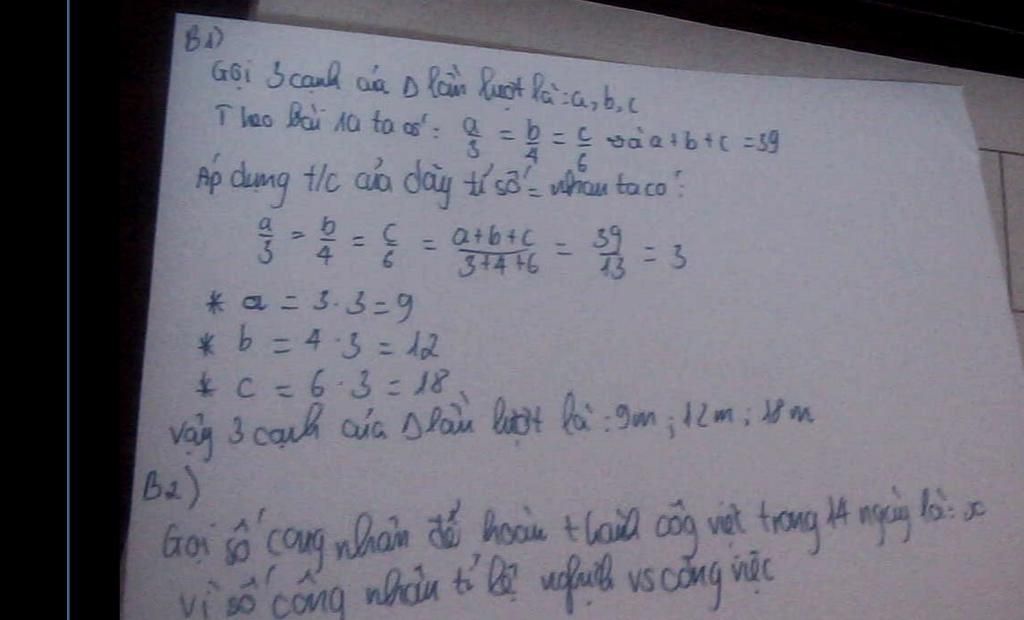 B1)
Gọi 3 cạnh của Δ lần lượt là: a, b, c
Theo bài ra ta có: a/3 = b/4 = c/6 và a+b+c = 39
Áp dụng t/c của dãy tỉ số = nhau ta có:
a/3 = b/4 = c/6 = (a+b+c)/(3+4+6) = 39/13 = 3
* a = 3·3 = 9
* b = 4·3 = 12
* c = 6·3 = 18
Vậy 3 cạnh của Δ lần lượt là: 9m; 12m; 18m
B2)
Gọi số công nhân để hoàn thành côg việt trong 14 ngày là: x
Vì số công nhân tỉ lệ nghịch vs công việc